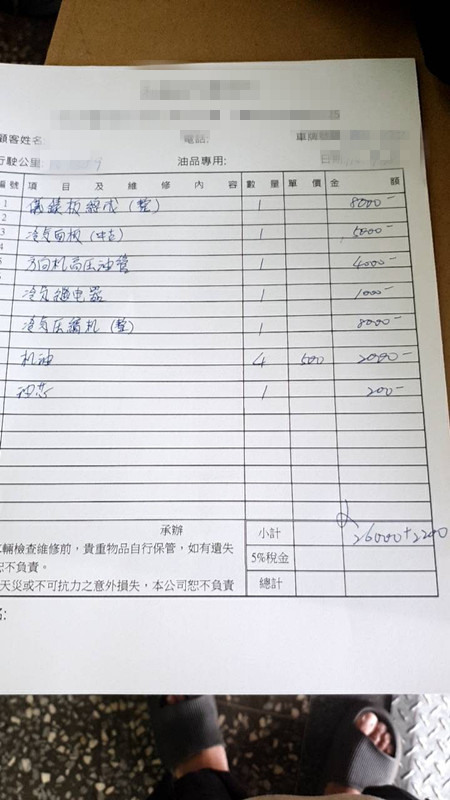 顧客姓名
電話:
車牌號碼
行駛公里
油品專用:
日期
編號 項目及維修內容 數量 單價 金額
1 儀錶板總成(整) 1 8000-
2
3 冷气面板(中古) 1 5000-
4 方向机高压油管 1 4000-
冷气继电器 1 1000-
冷气压縮机(整) 1 8000-
机油 4 500 2000-
油芯 1 200-
承辦
小計 26000+2200
車輛檢查維修前，貴重物品自行保管，如有遺失
恕不負責。
5%稅金
天災或不可抗力之意外損失，本公司恕不負責
總計